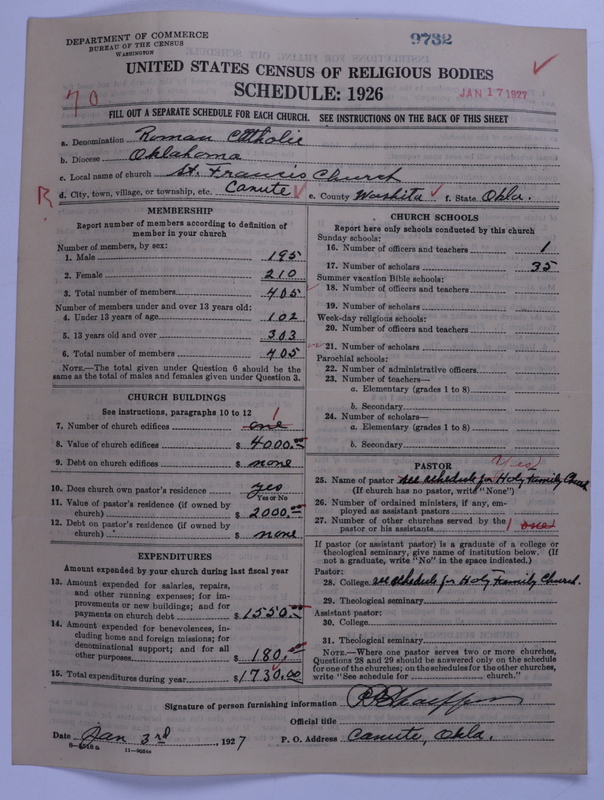 DEPARTMENT OF COMMERCE
BUREAU OF THE CENSUS
WASHINGTON
9732
UNITED STATES CENSUS OF RELIGIOUS BODIES
SCHEDULE: 1926
JAN 17 1927
70
FILL OUT A SEPARATE SCHEDULE FOR EACH CHURCH. SEE INSTRUCTIONS ON THE BACK OF THIS SHEET
a. Denomination Roman Catholic
b. Diocese Oklahoma
c. Local name of church St. Francis Church
R d. City, town, village, or township, etc. Canute e. County Washita f. State Okla.
MEMBERSHIP
Report number of members according to definition of
member in your church
Number of members, by sex:
1. Male 195
2. Female 210
3. Total number of members 405
Number of members under and over 13 years old:
4. Under 13 years of age 102
5. 13 years old and over 303
6. Total number of members 405
NOTE.—The total given under Question 6 should be
same as the total of males and females given under Question 3.
CHURCH BUILDINGS
See instructions, paragraphs 10 to 12
7. Number of church edifices one 1
8. Value of church edifices $ 4000.00
9. Debt on church edifices $ none
10. Does church own pastor's residence yes
Yes or No
11. Value of pastor's residence (if owned by
church) $ 2000.00
12. Debt on pastor's residence (if owned by
church) $ none
EXPENDITURES
Amount expended by your church during last fiscal year
13. Amount expended for salaries, repairs,
and other running expenses; for im-
provements or new buildings; and for
payments on church debt $ 1550.00
14. Amount expended for benevolences, in-
cluding home and foreign missions; for
denominational support; and for all
other purposes $ 180.00
15. Total expenditures during year $ 1730.00
CHURCH SCHOOLS
Report here only schools conducted by this church
Sunday schools:
16. Number of officers and teachers 1
17. Number of scholars 35
Summer vacation Bible schools:
18. Number of officers and teachers
19. Number of scholars
Week-day religious schools:
20. Number of officers and teachers
21. Number of scholars
Parochial schools:
22. Number of administrative officers
23. Number of teachers—
a. Elementary (grades 1 to 8)
b. Secondary
24. Number of scholars—
a. Elementary (grades 1 to 8)
b. Secondary
PASTOR
yes
25. Name of pastor see schedule for Holy Family Church
(If church has no pastor, write "None")
26. Number of ordained ministers, if any, em-
ployed as assistant pastors
27. Number of other churches served by the
pastor or his assistants 1 one
If pastor (or assistant pastor) is a graduate of a college or
theological seminary, give name of institution below. (If
not a graduate, write "No" in the space indicated.)
Pastor:
28. College see schedule for Holy Family Church.
29. Theological seminary
Assistant pastor:
30. College
31. Theological seminary
NOTE.—Where one pastor serves two or more churches,
Questions 28 and 29 should be answered only on the schedule
for one of the churches; on the schedules for the other churches,
write "See schedule for church."
Signature of person furnishing information
Official title
Date Jan 3rd, 1927 P. O. Address Canute, Okla.